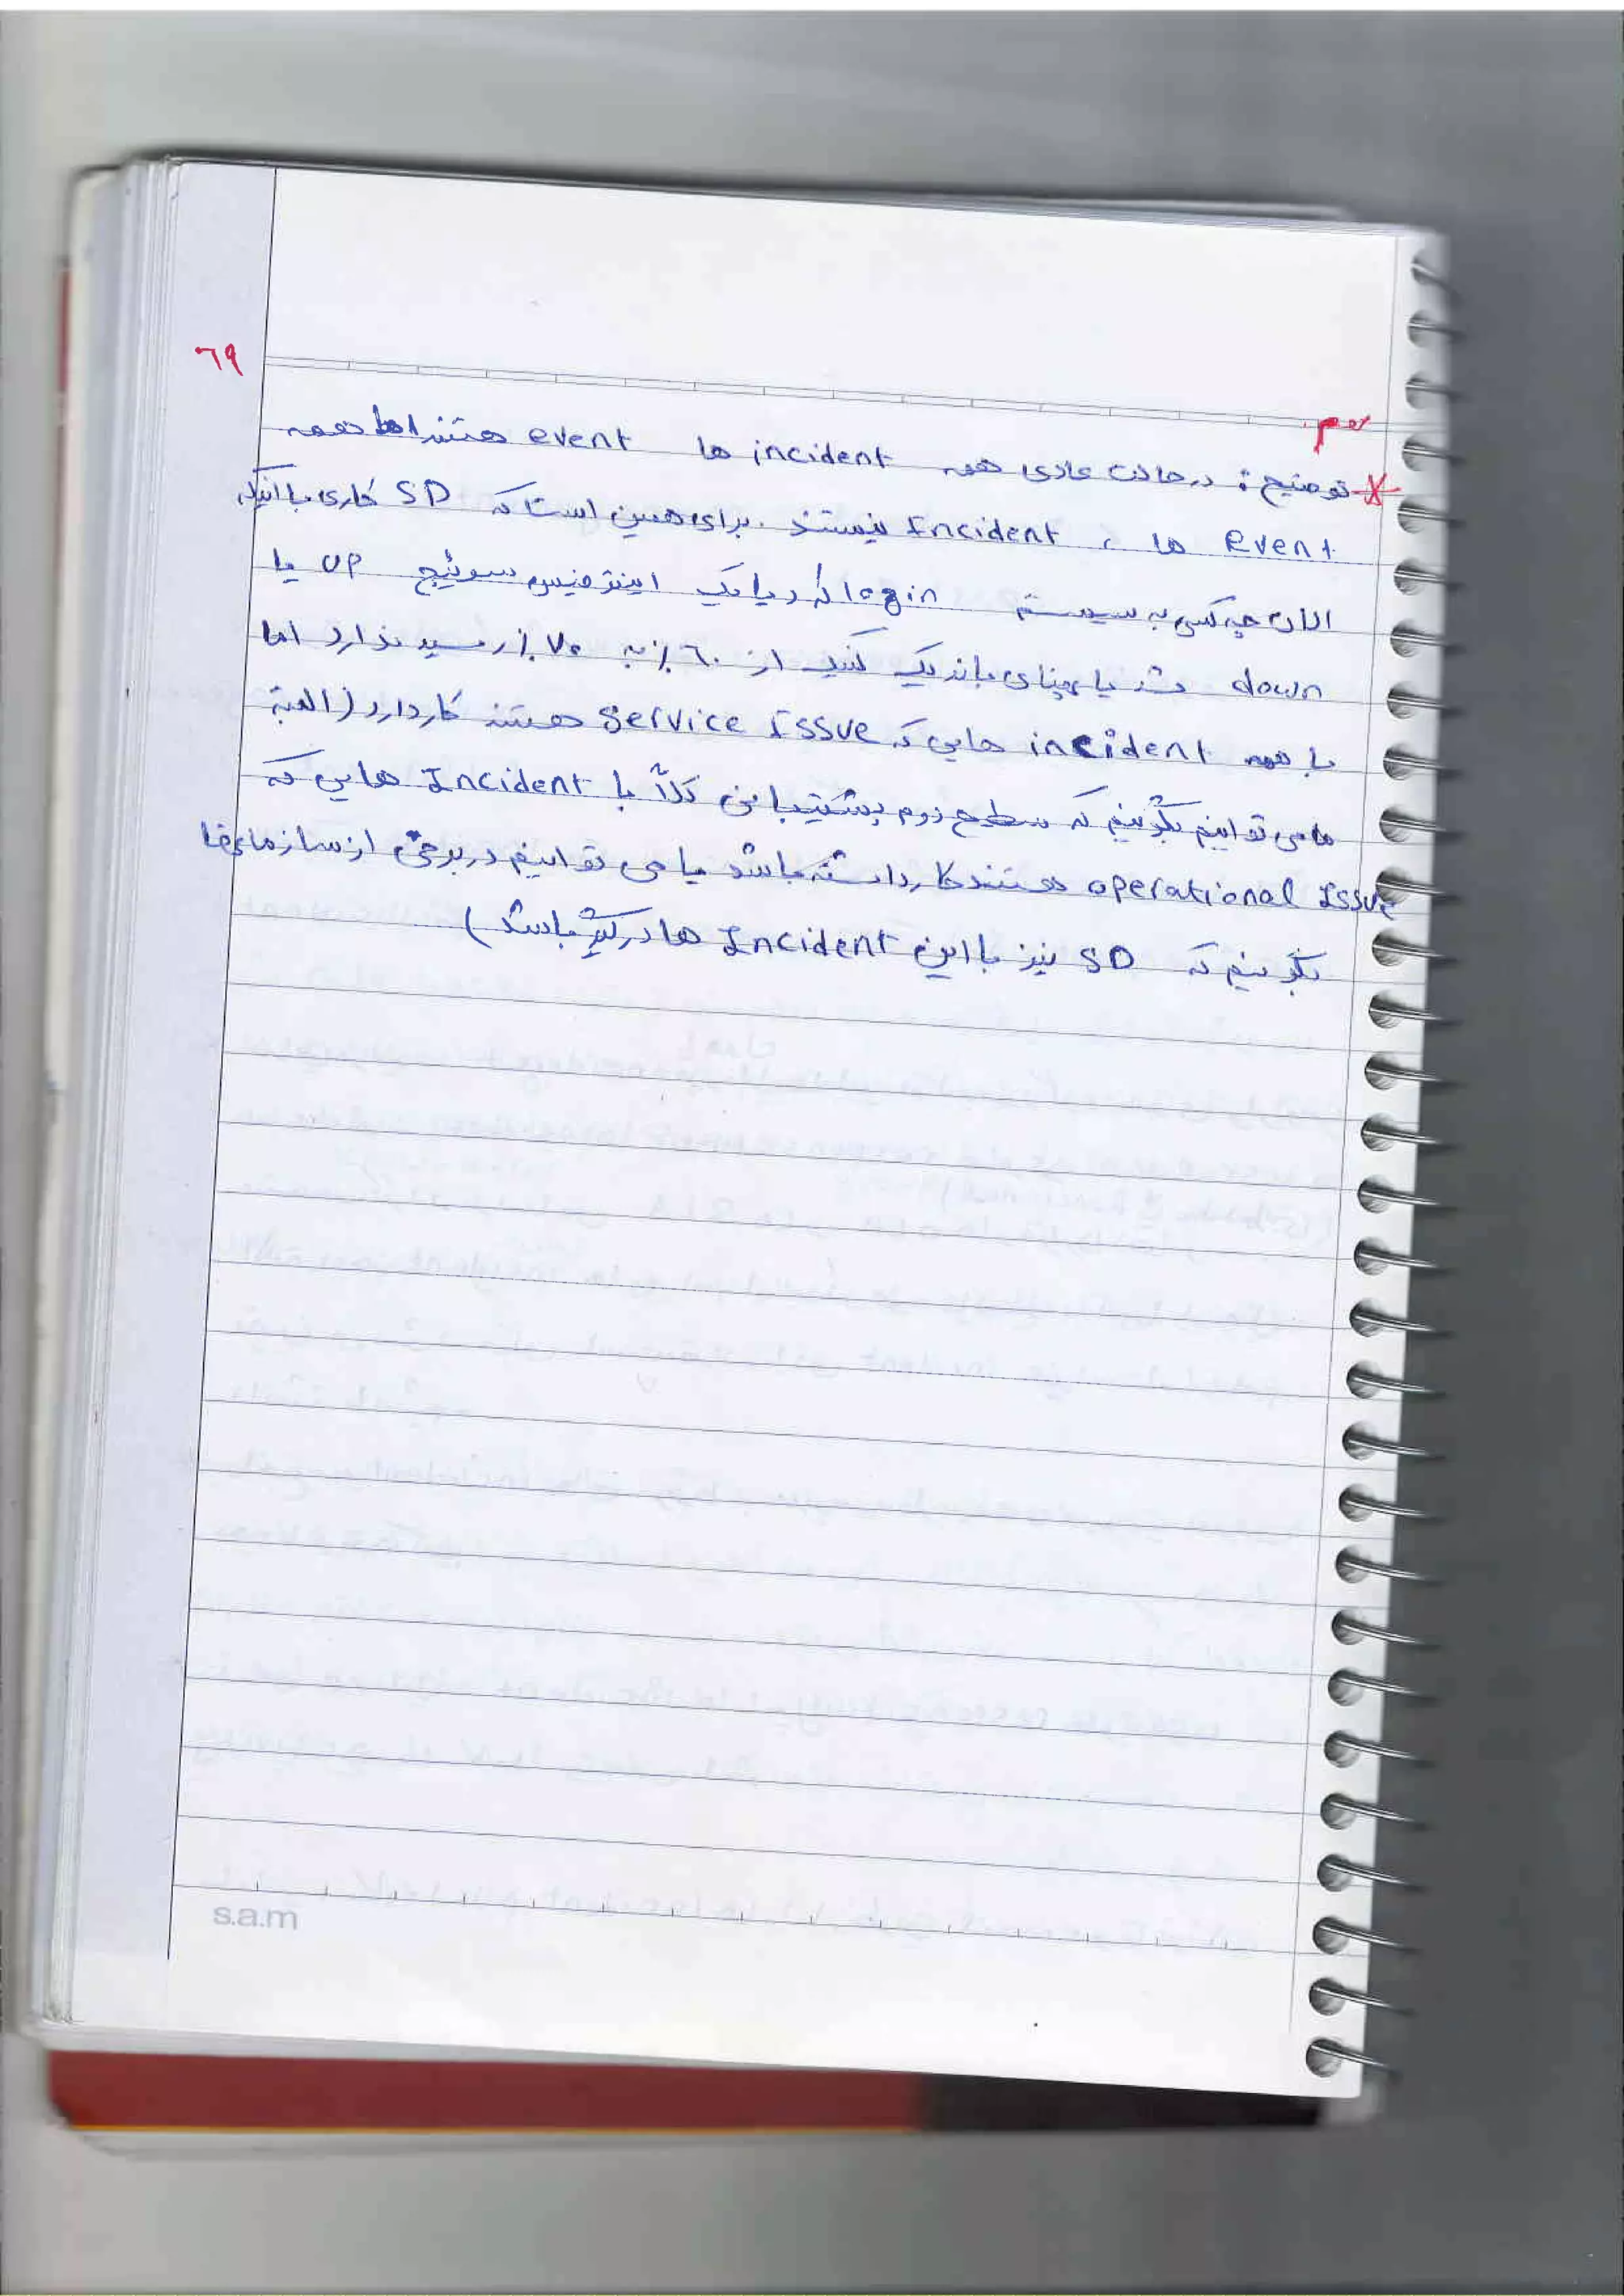 ٦٩
م
* توضیح: در حالت عادی همه incident ها event هستند اما همه
Event ها ، Incident نیستند. برای همین است که SD کاری با اینکه
الان چه کسی به سیستم login کرد یا یک اینترفیس سوئیچ UP یا
down شد یا پهنای باند یک لینک از ٦٠٪ به ٧٠٪ رسید ندارد اما
با همه incident هایی که Service Issue هستند کار دارد (البته
ما می توانیم بگوییم که سطح دوم پشتیبانی کلاً با Incident هایی که
operational Issue هستند کار داشته باشد یا می توانیم در برخی از سازمانها
بگوییم که SD نیز با این Incident ها درگیر باشد)
s.a.m